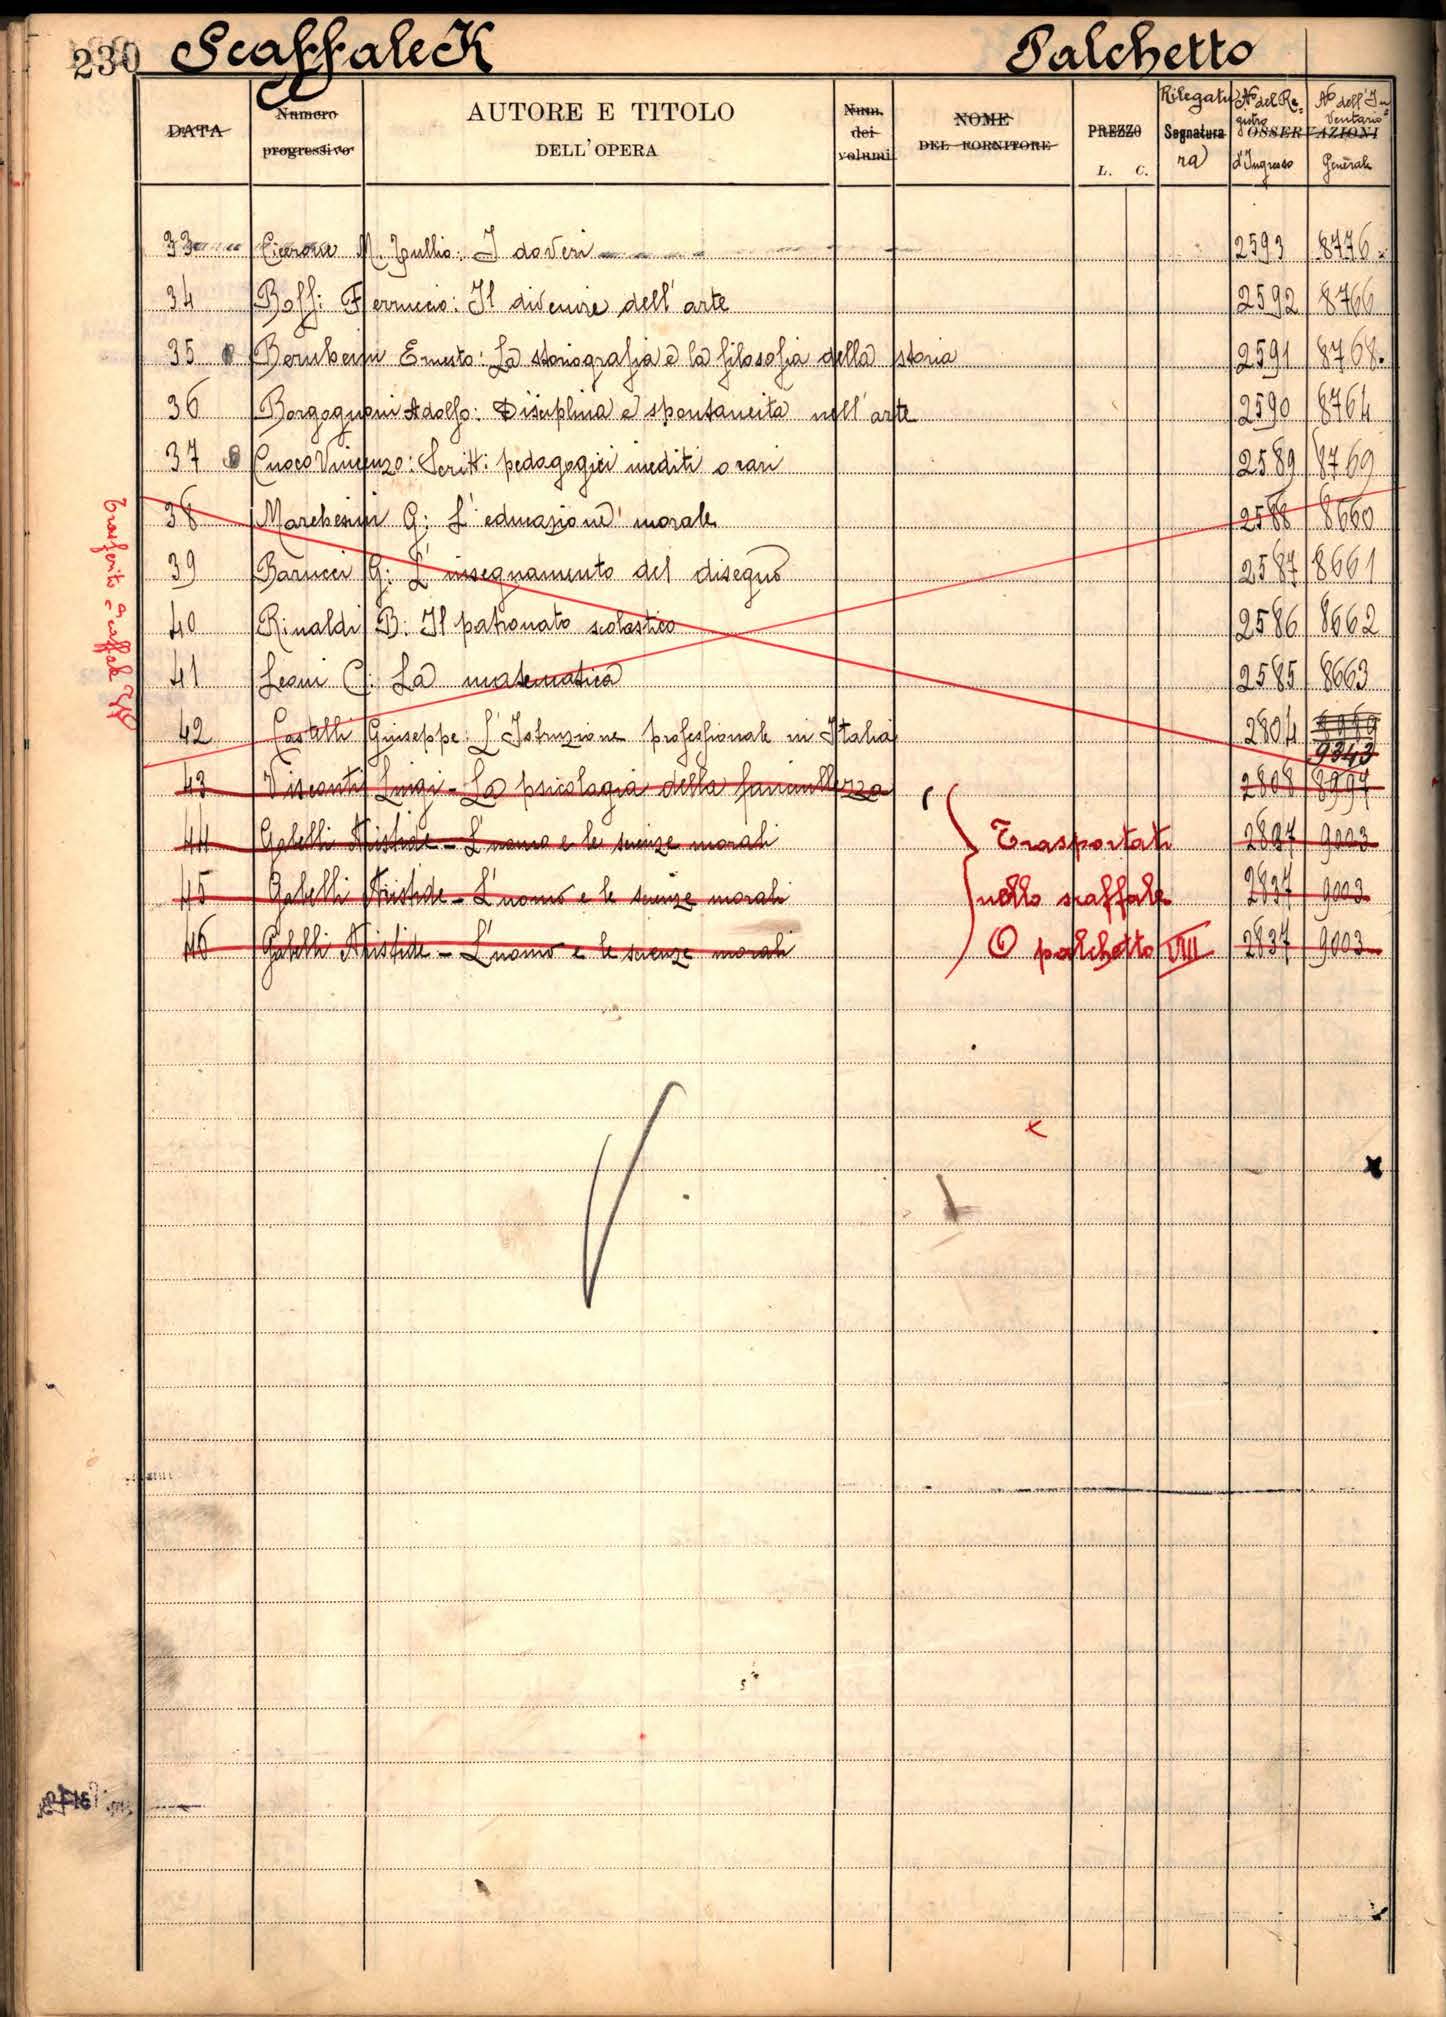 230 Scaffale K Palchetto
DATA Numero progressivo AUTORE E TITOLO DELL'OPERA Num. dei volumi NOME DEL FORNITORE PREZZO L. C. Rilegatu Segnatura ra) No del Re= gistro d'Ingresso OSSERVAZIONI No dell'In= ventario Generale
33 Cicerone M. Tullio: I doveri 2593 8776
34 Boffi Ferruccio: Il divenire dell'arte 2592 8766
35 Bernheim Ernesto: La storiografia e la filosofia della storia 2591 8768
36 Borgognoni Adolfo: Disciplina e spontaneità nell'arte 2590 8764
37 Cuoco Vincenzo: Scritti pedagogici inediti o rari 2589 8769
38 Marchesini G: L'educazione morale 2588 8660
39 Barucci G: L'insegnamento del disegno 2587 8661
40 Rinaldi B: Il patronato scolastico 2586 8662
41 Leoni C: La matematica 2585 8663
42 Castelli Giuseppe: L'Istruzione professionale in Italia 2804 8989
9343
43 Visconti Luigi - La psicologia della fanciullezza 2808 8997
44 Gabelli Aristide - L'uomo e le scienze morali 2837 9003
45 Gabelli Aristide - L'uomo e le scienze morali 2837 9003
46 Gabelli Aristide - L'uomo e le scienze morali 2837 9003
Trasportati
nello scaffale
O palchetto VIII
Trasferito a scaffale